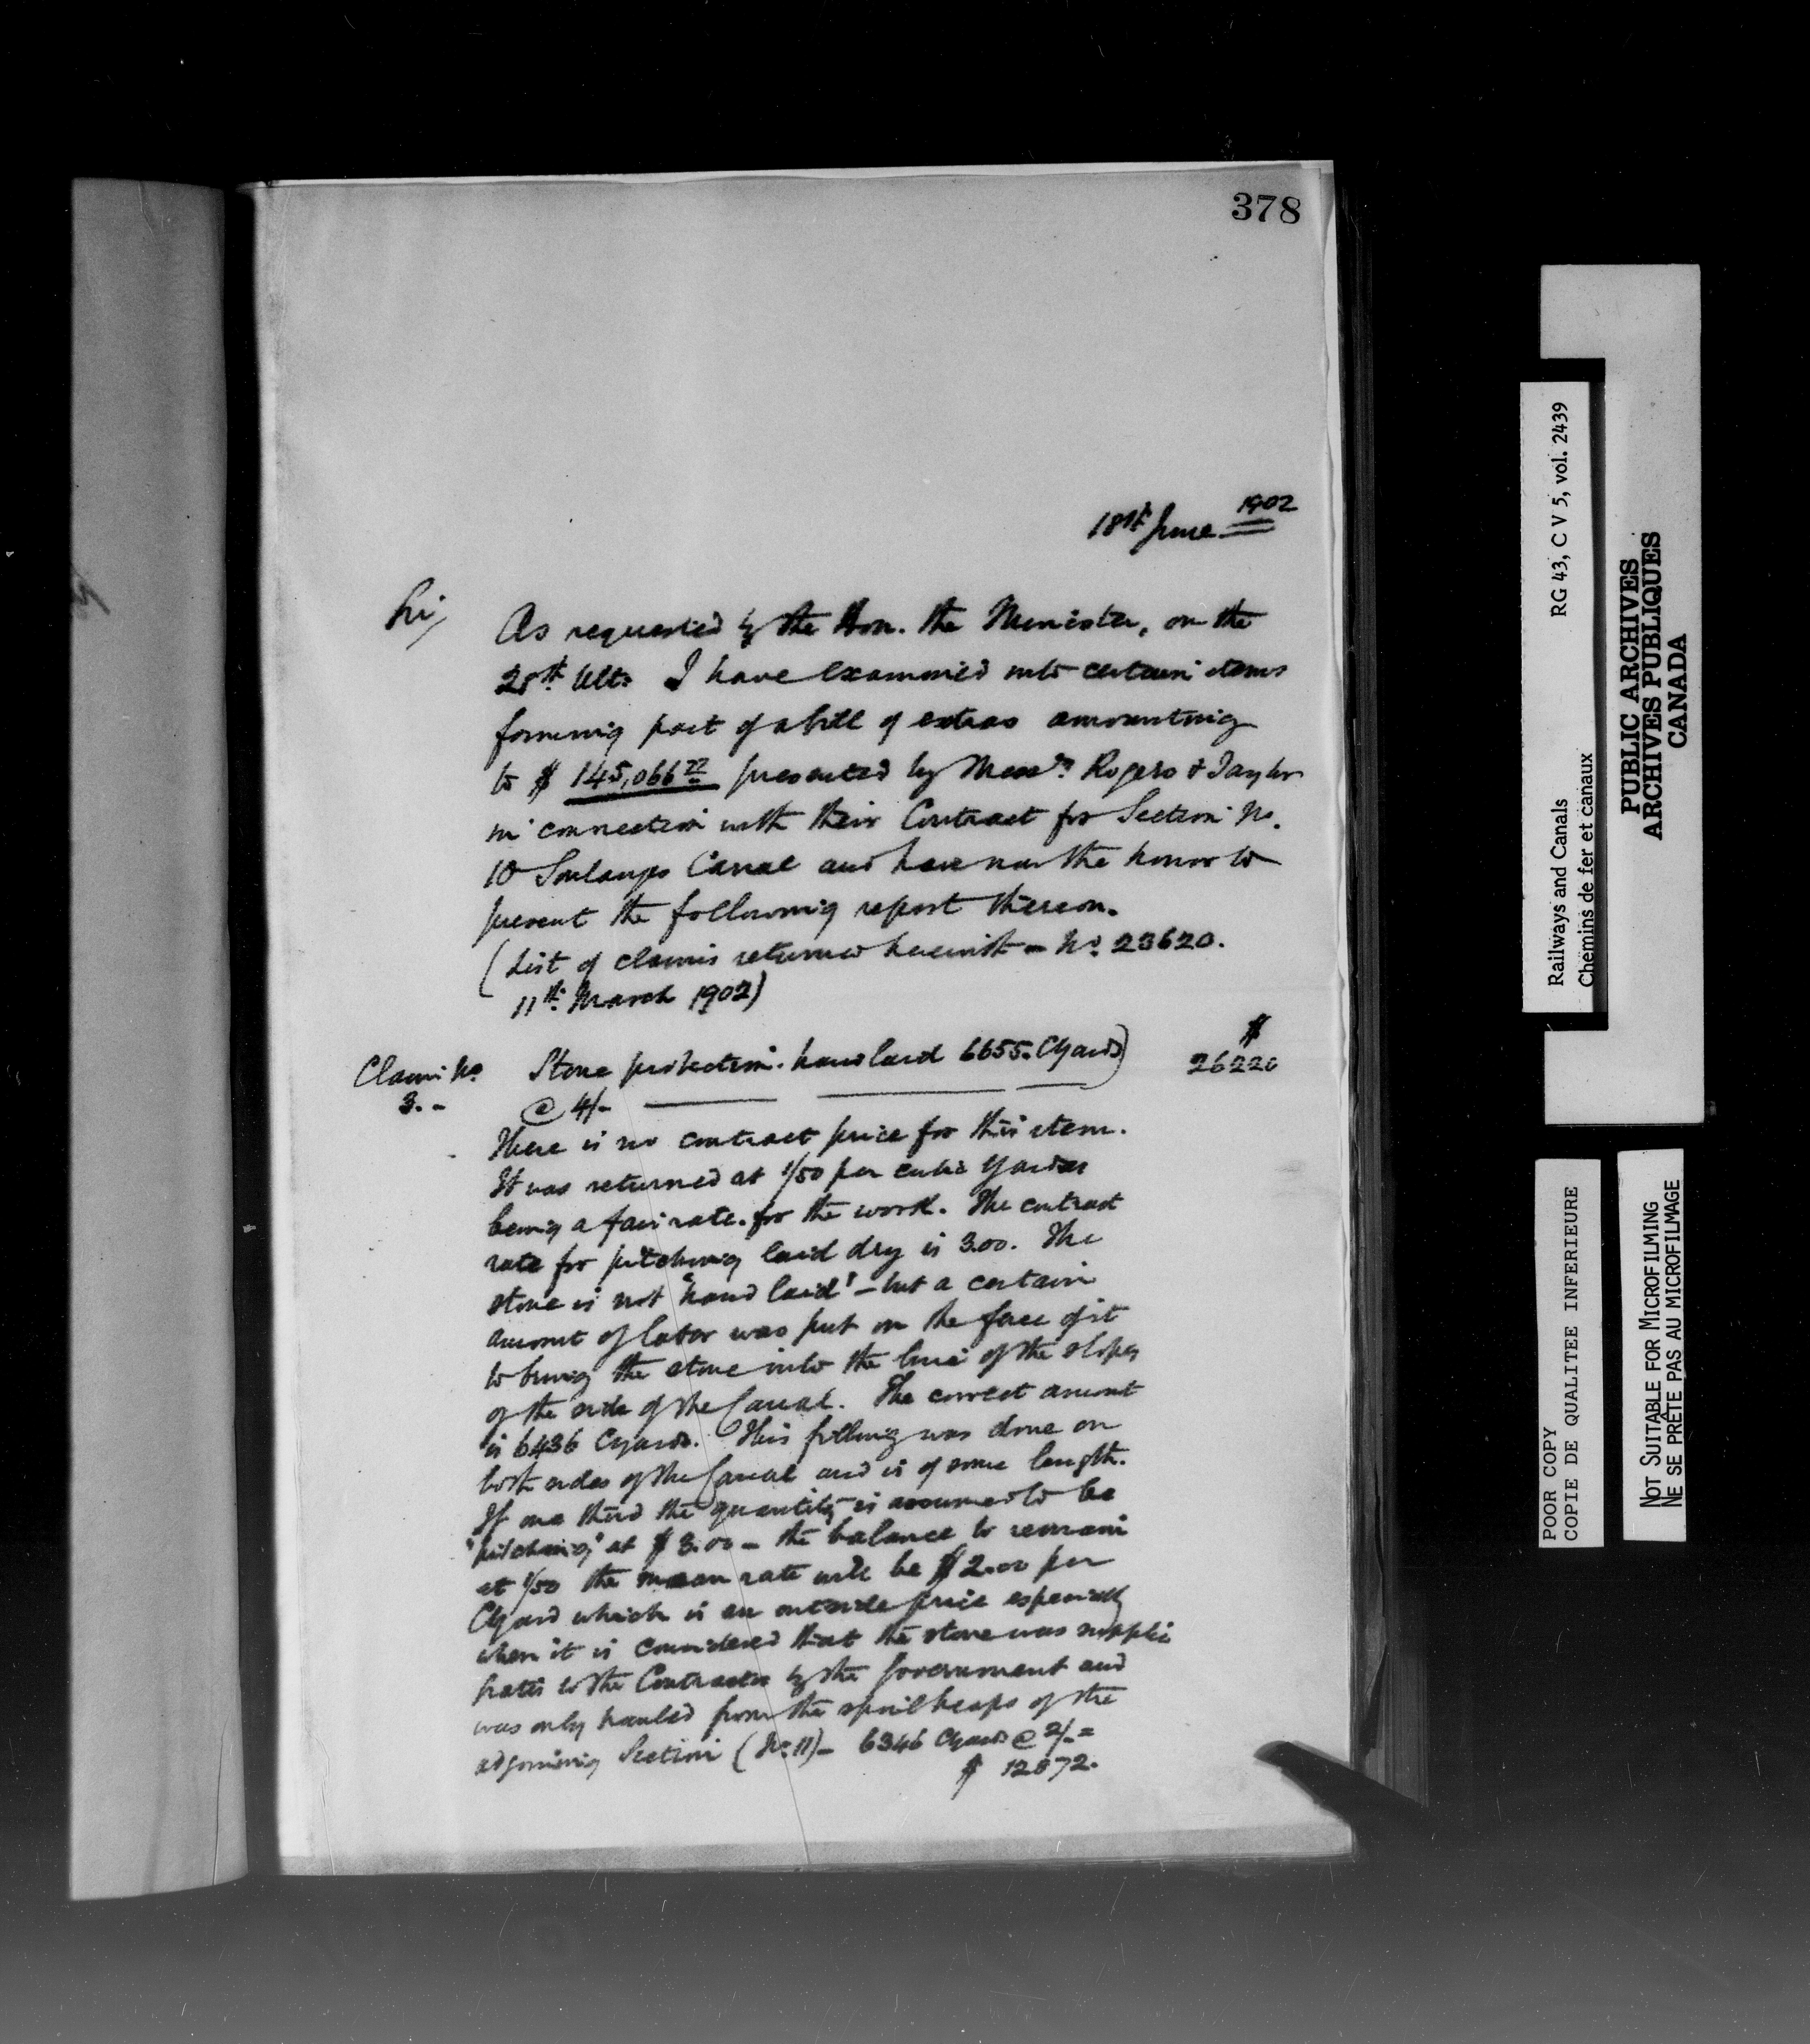 378
18th June 1902
Sir,
As requested by the Hon. the Minister, on the
28th Ulto I have examined into certain items
forming part of a bill of extras amounting
to $ 145,066 77 presented by Messrs Rogers & Taylor
in connection with their Contract for Section No.
10 Soulanges Canal and have now the honor to
present the following report thereon.
(List of claims returned herewith - No. 23620.
11th March 1902)
$
Claim No Stone protection. hand laid 6655. Cyards) 26220
3. - @ 4/-
There is no contract price for this item.
It was returned at 1/50 per cubic Yard as
being a fair rate. for the work. The contract
rate for pitching laid dry is 3.00. The
stone is not "hand laid" - but a certain
amount of labor was put on the face of it
to bring the stone into the line of the slopes
of the side of the Canal. The correct amount
is 6436 Cyards. This filling was done on
both sides of the Canal and is of some length.
If one third the quantity is assumed to be
"pitching" at $ 3.00 - the balance to remain
at 1/50 the mean rate will be $ 2.00 per
Cyard which is an outside price especially
when it is considered that the stone was supplie
gratis to the Contractor by the Government and
was only hauled from the spoil heaps of the
adjoining Section (No. 11) - 6346 Cyards @ 2/- =
$ 12872.
Railways and Canals RG 43, C V 5, vol. 2439
Chemins de fer et canaux
PUBLIC ARCHIVES
ARCHIVES PUBLIQUES
CANADA
POOR COPY
COPIE DE QUALITEE INFERIEURE
NOT SUITABLE FOR MICROFILMING
NE SE PRÊTE PAS AU MICROFILMAGE